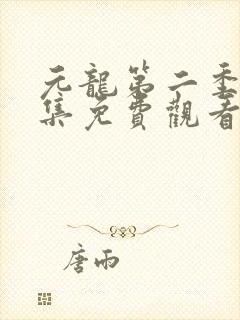 元龍第二季
集免費觀看
唐雨